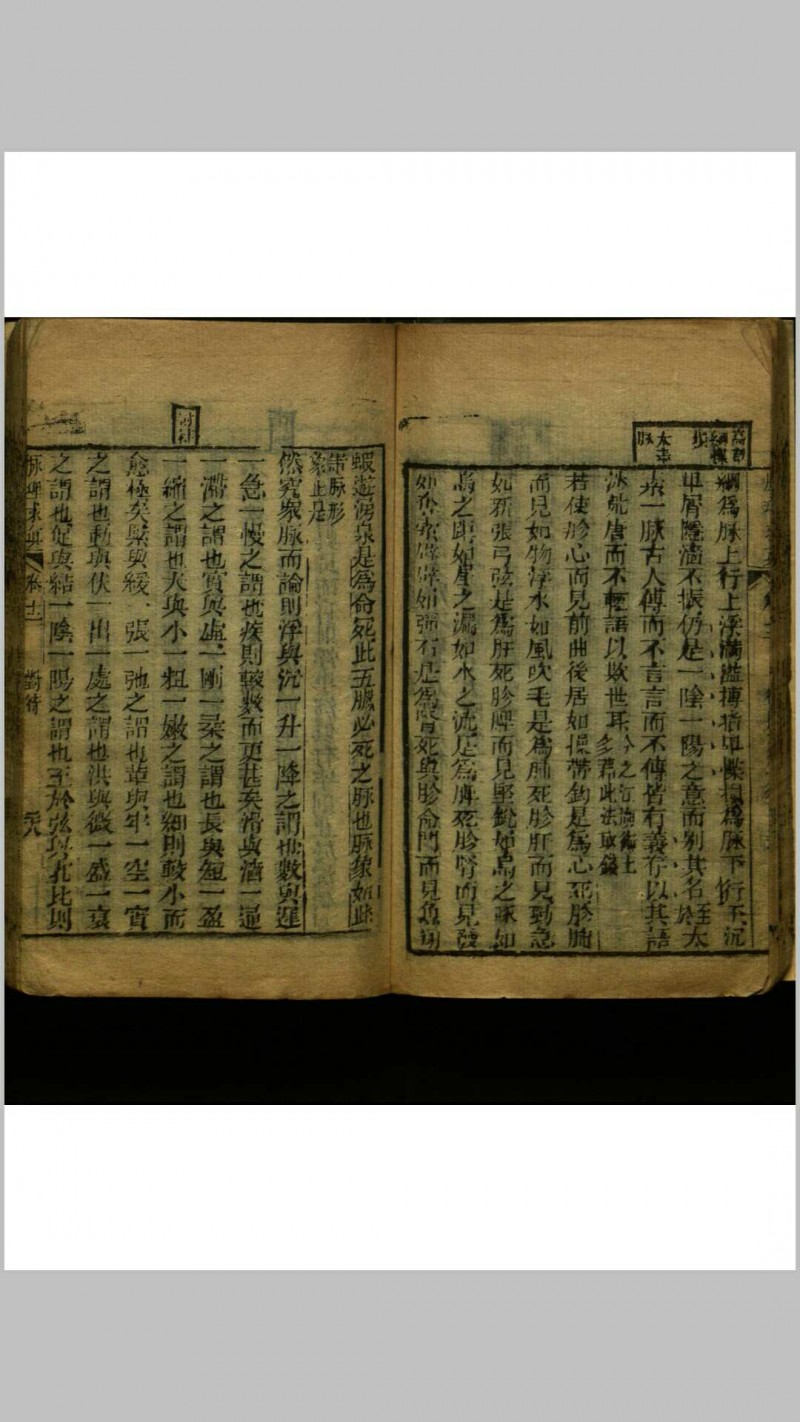 綱爲脉上行上浮滿溢搏指卑惵損爲脉下行不沉
卑屑隱濇不振仍是一陰一陽之意而别其名
太素一脉古人傳而不言言而不傳皆有義存以其語
荒唐而不輕語以欺世耳
多藉此法取錢
若使胗心而見前曲後居如操帶鈎是爲心死胗肺
而見如物浮水如風吹毛是爲肺死胗肝而見勁急
如新張弓弦是爲肝死胗脾而見堅銳如烏之喙如
烏之距如屋之漏如水之流是爲脾死胗腎而見發
如奪索辟辟如彈石是爲腎死與胗命門而見魚翔
蝦遊湧泉是爲命死此五臟必死之脉也脉象如此
諸脉形
象止是
然究衆脉而論則浮與沉一升一降之謂也數與遲
一急一慢之謂也疾則較數而更甚矣滑與濇一通
一滯之謂也實與虛一剛一柔之謂也長與短一盈
一縮之謂也大與小一粗一嫩之謂也細則較小而
愈極矣緊與緩一張一弛之謂也革與牢一空一實
之謂也動與伏一出一處之謂也洪與微一盛一衰
之謂也促與結一陰一陽之謂也至於弦與芤比則
脉理求真
卷十一